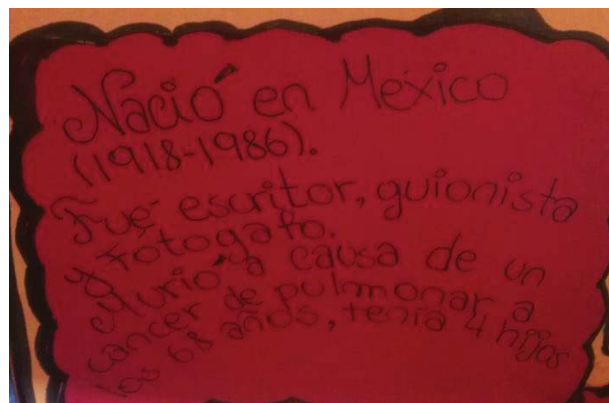 Nació en Mexico
(1918-1986).
Fué escritor, guionista
y fotogafo.
Murió a causa de un
cancer de pulmonar a
los 68 años, tenia 4 hijos